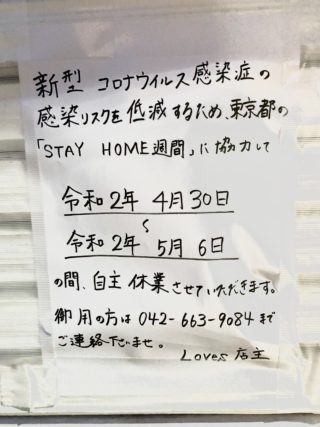 新型 コロナウイルス感染症の
感染リスクを低減するため、東京都の
「STAY HOME週間」に協力して
令和2年 4月30日
〜
令和2年 5月6日
の間、自主休業させていただきます。
御用の方は 042-663-9084まで
ご連絡下さいませ。
Loves 店主